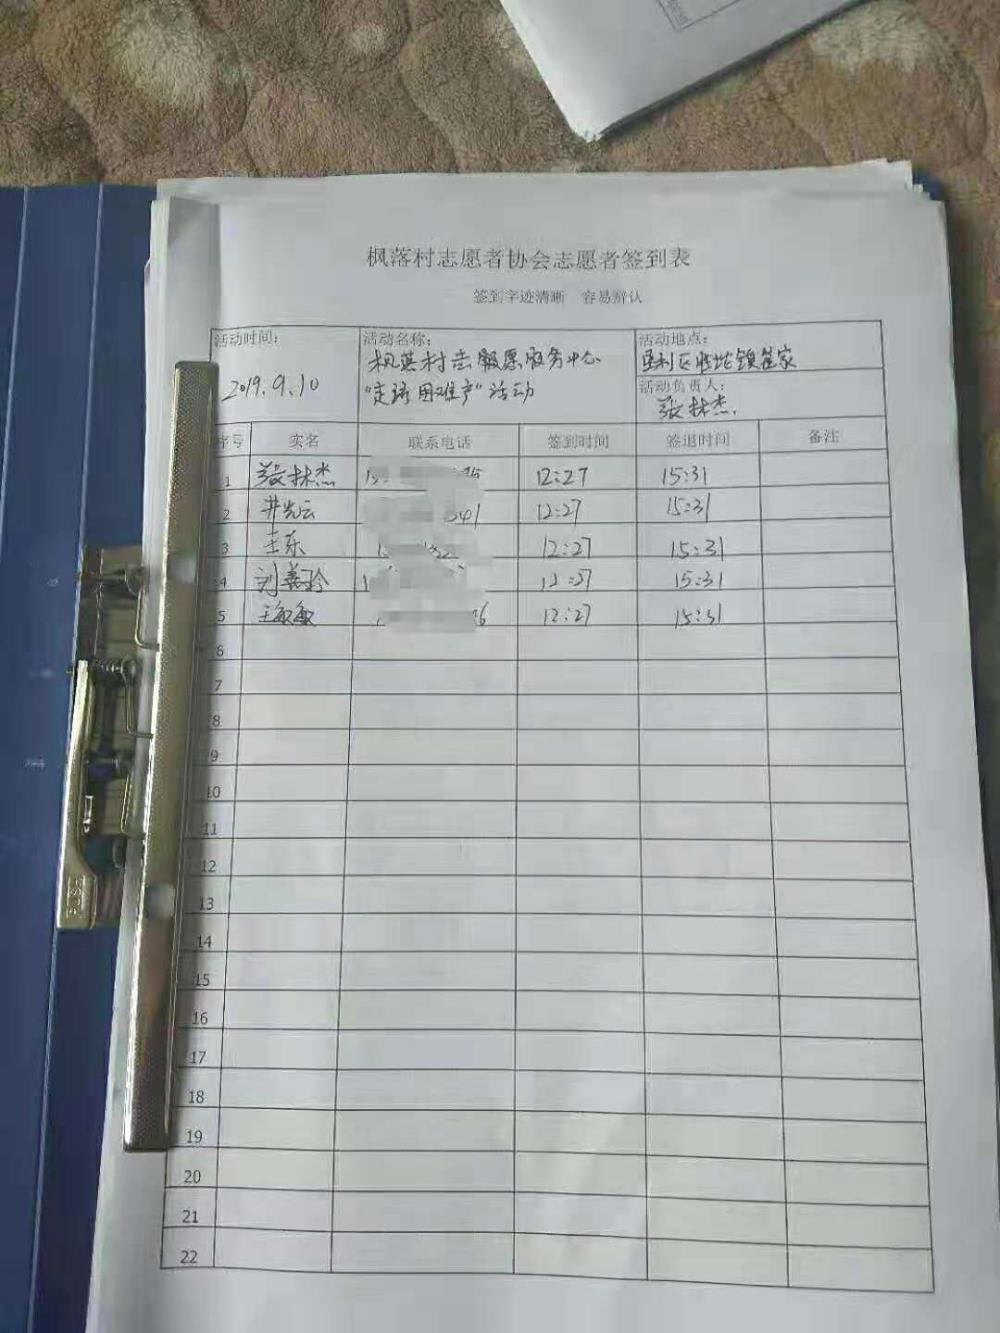 枫落村志愿者协会志愿者签到表
签到字迹清晰 容易辨认
活动时间: 活动名称: 活动地点:
2019.9.10
困难户"活动
活动负责人:
张林杰
序号 实名 联系电话 签到时间 签退时间 备注
1 张林杰 12:27 15:31
2 井光云 12:27 15:31
3 东 12:27 15:31
4 刘美玲 12:27 15:31
5 王敏敏 12:27 15:31
6
7
8
9
10
11
12
13
14
15
16
17
18
19
20
21
22